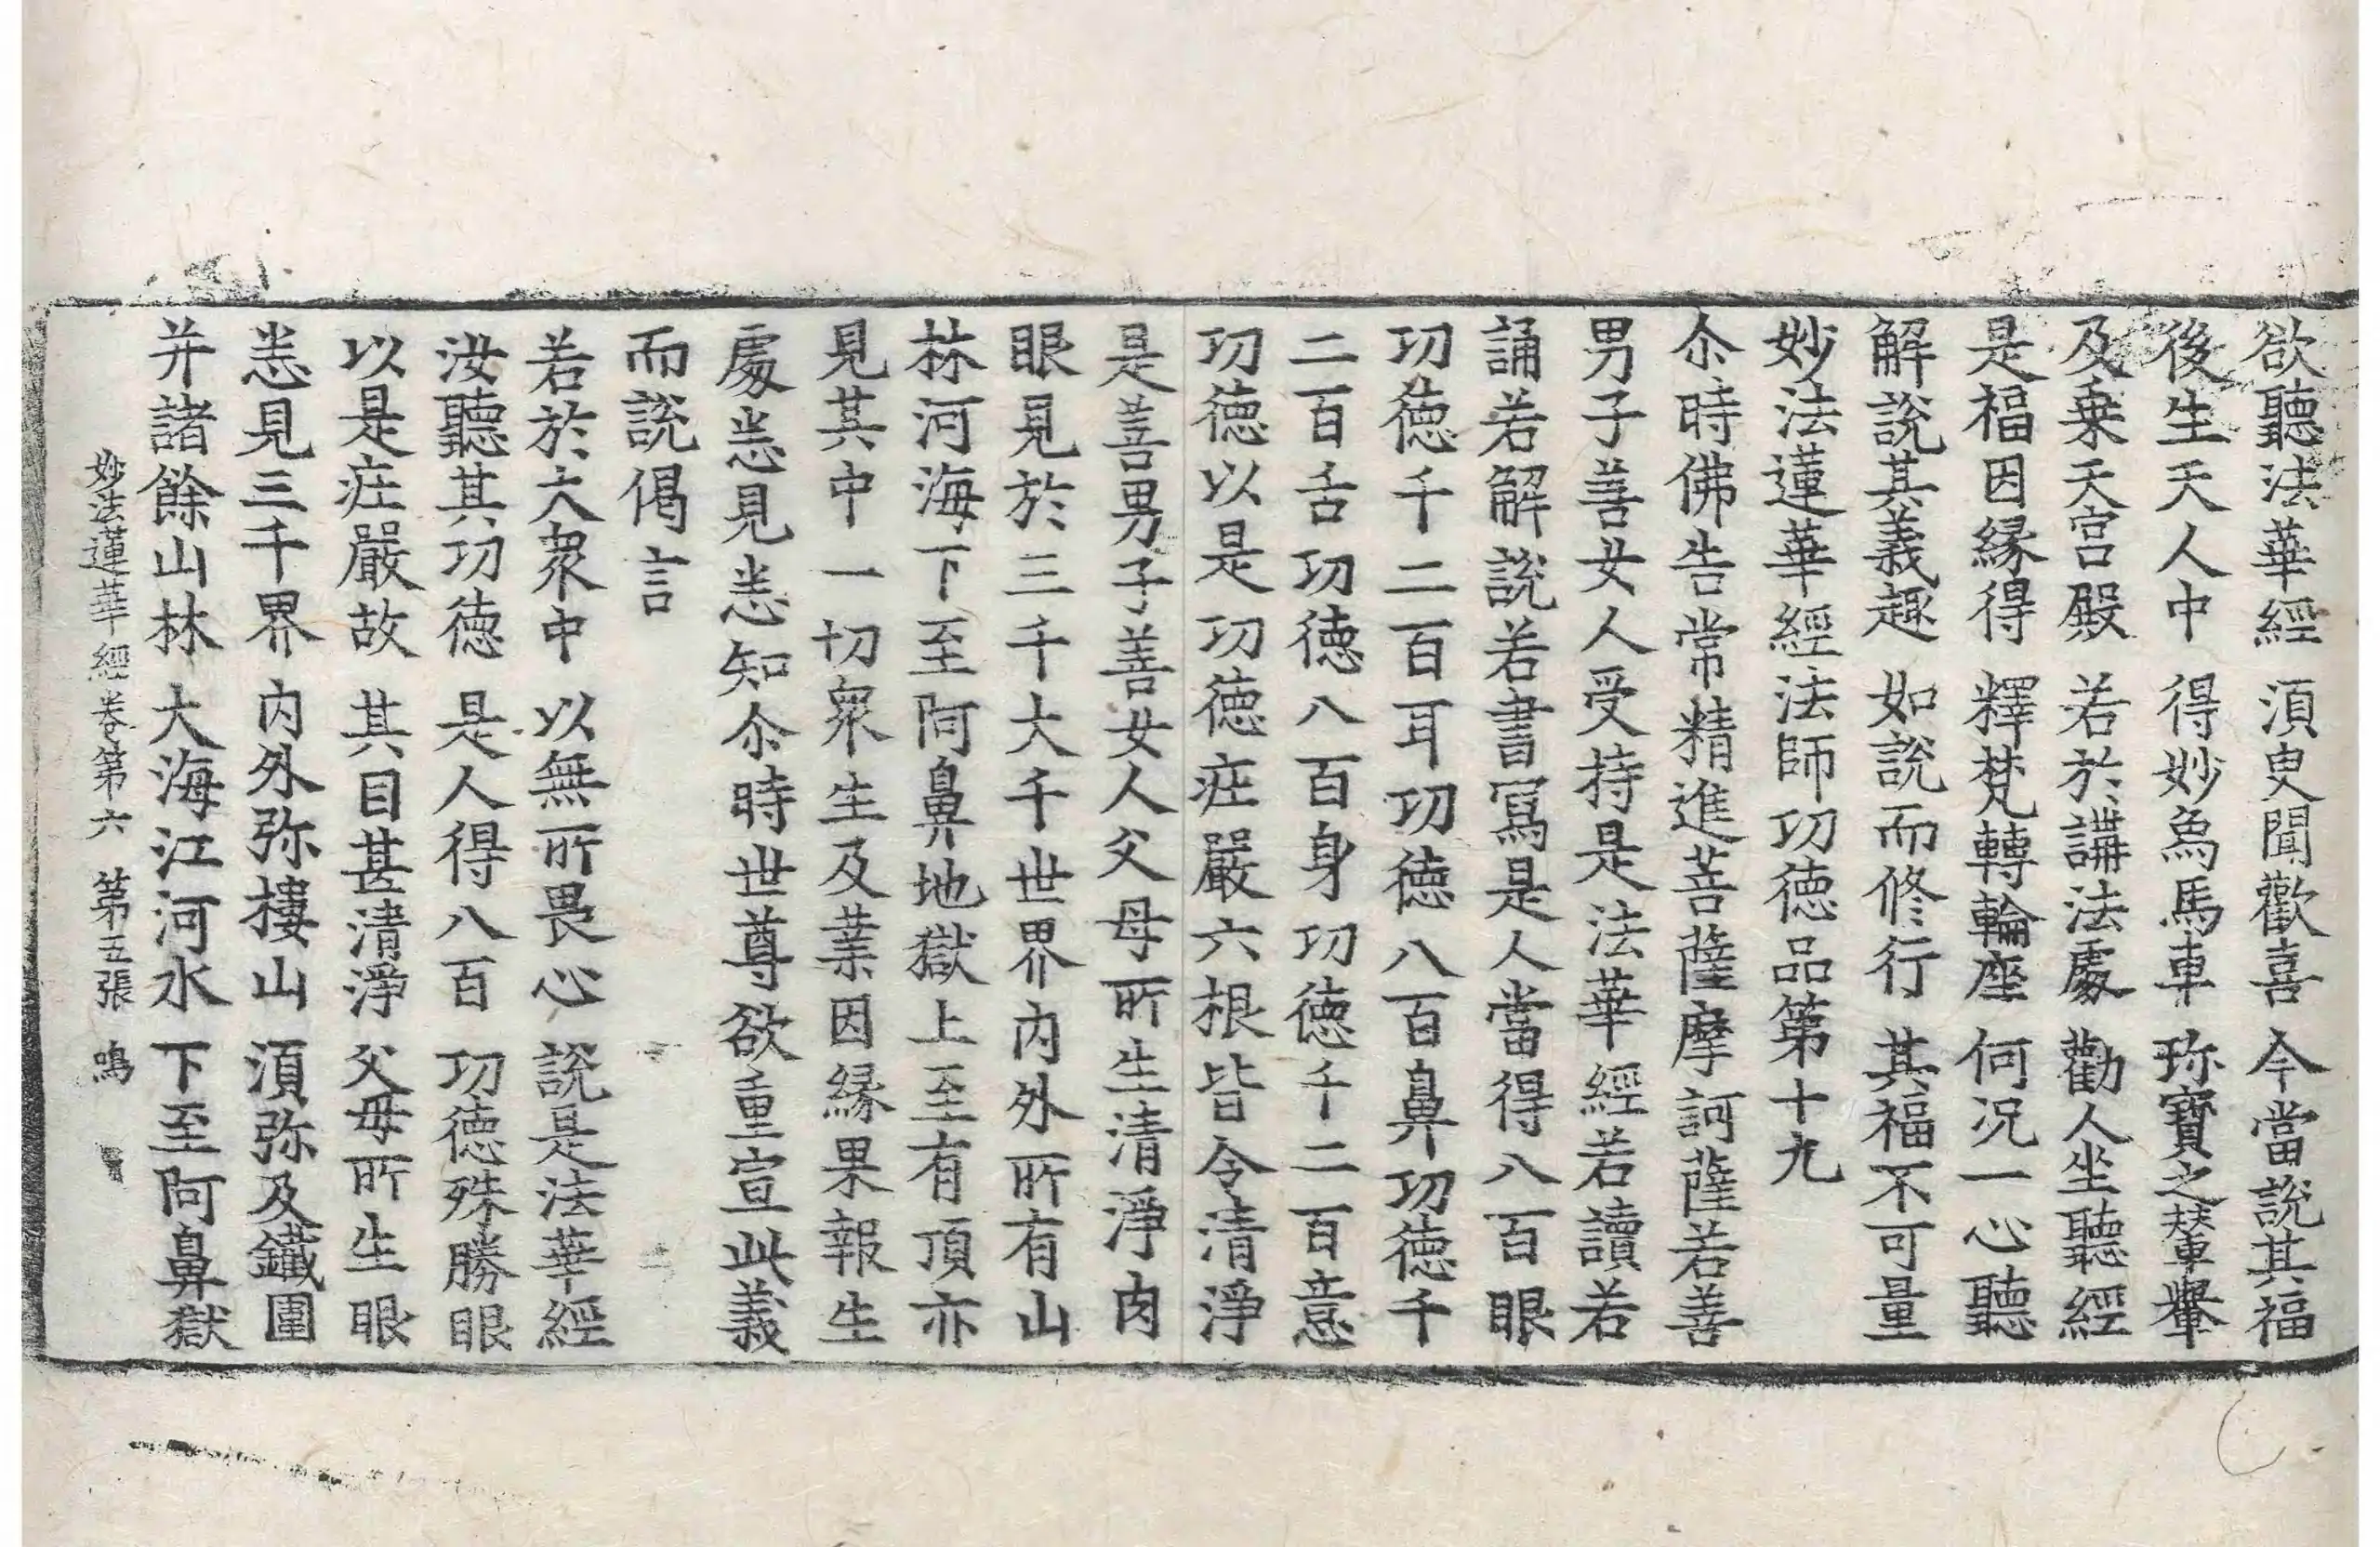 欲聽法華經 須臾聞歡喜 今當說其福
後生天人中 得妙象馬車 珎寶之輦轝
及乗天宮殿 若於講法處 勸人坐聽經
是福因縁得 釋梵轉輪座 何況一心聽
解說其義趣 如說而修行 其福不可量
妙法蓮華經法師功德品第十九
尒時佛告常精進菩薩摩訶薩若善
男子善女人受持是法華經若讀若
誦若解說若書寫是人當得八百眼
功德千二百耳功德八百鼻功德千
二百舌功德八百身功德千二百意
功德以是功德庄嚴六根皆令清淨
是善男子善女人父母所生清淨肉
眼見於三千大千世界內外所有山
林河海下至阿鼻地獄上至有頂亦
見其中一切衆生及業因縁果報生
處悉見悉知尒時世尊欲重宣此義
而說偈言
若於大衆中 以無所畏心 說是法華經
汝聽其功德 是人得八百 功德殊勝眼
以是庄嚴故 其目甚清淨 父母所生眼
悉見三千界 內外弥樓山 須弥及鐵圍
并諸餘山林 大海江河水 下至阿鼻獄
妙法蓮華經卷第六 第五張 鳴